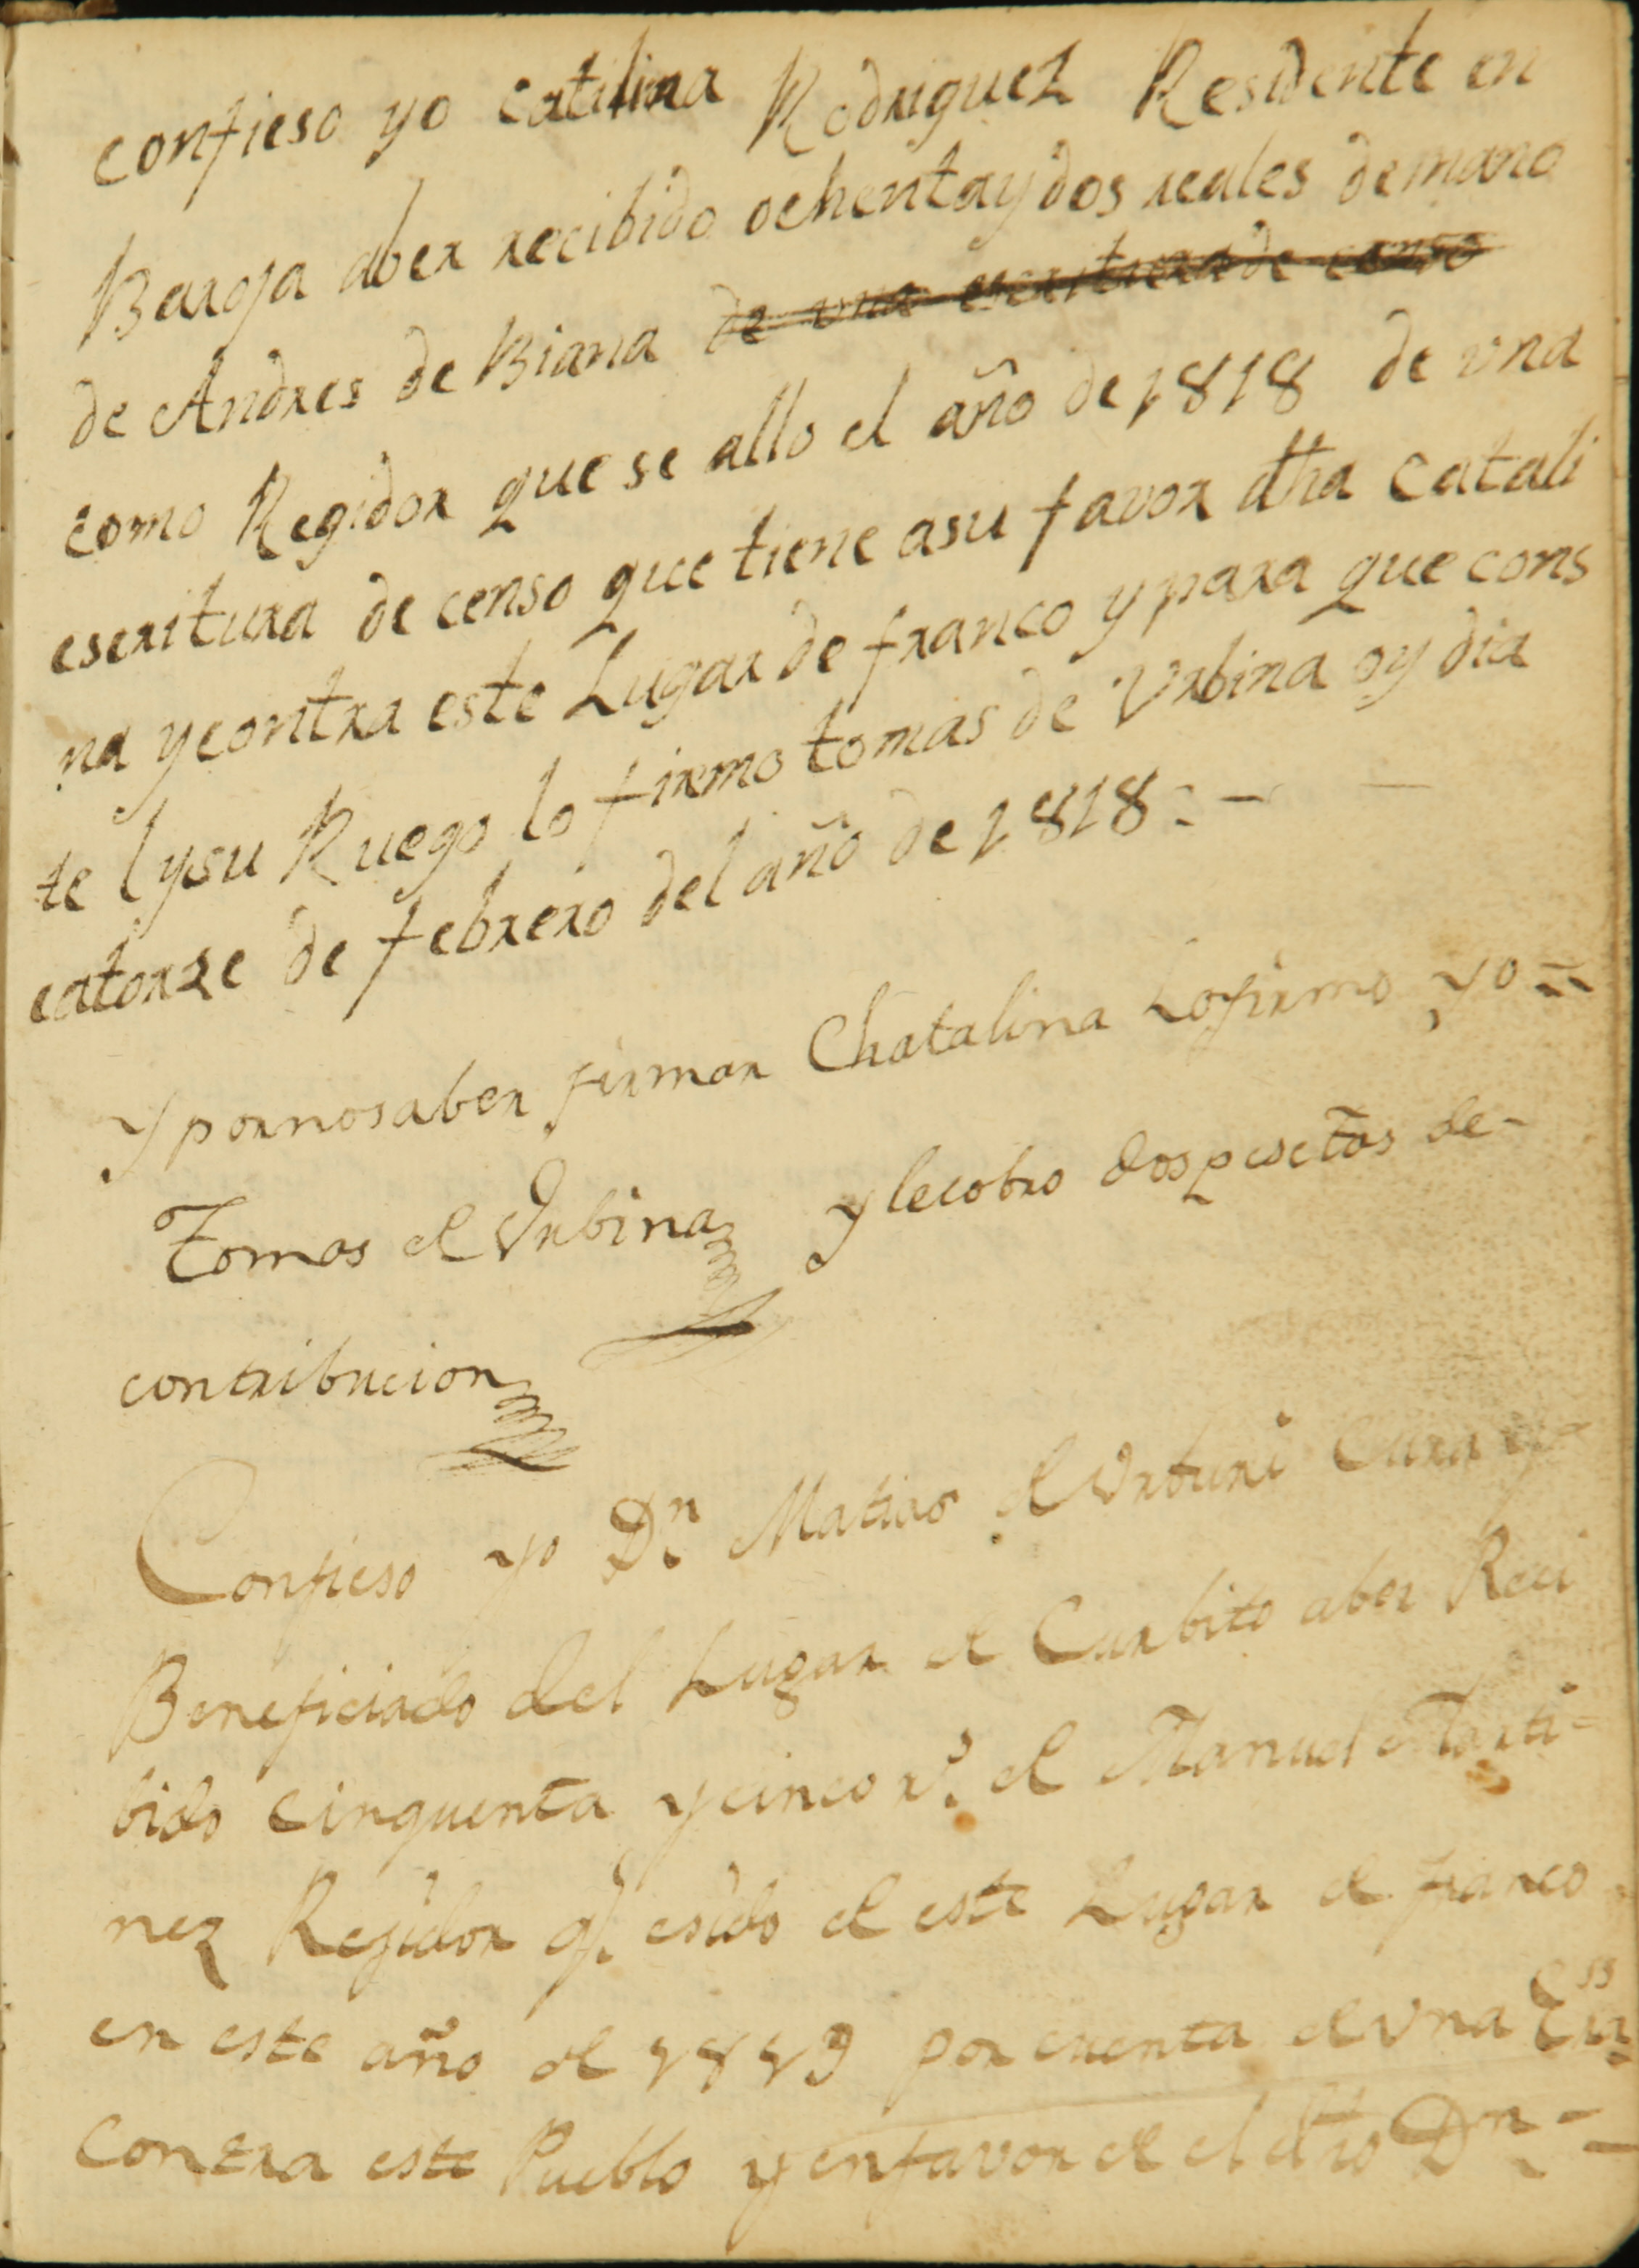 confieso yo catilina Rodriguez Residente en
Baroja aber recibido ochentaydos reales demano
de Andres de Biana de una escriturade censo
como Regidor que se allo el año de 1818 de vna
escritura de censo que tiene asu favor dha catali
na ycontra este Lugar de franco ypara que cons
te lysu Ruego lo firmo tomas de Vrbina oy dia
catorze de febrero del año de 1818: -
Y pornosaber firmar Chatalina Lofirmo yo =
Tomas de Vrbina ylecobro dospesetas de-
contribucion
Confieso yo Dn. Matias de Vrturi Cura y
Beneficiado del Lugar de Curbito aber Reci
bido cinquenta ycinco rs. de Manuel Marti=
nez Regidor q. esido de este Lugar de franco
en este año de 1819 por cuenta de vna Essra
Contra este Pueblo yenfavor de el dho Dn. -